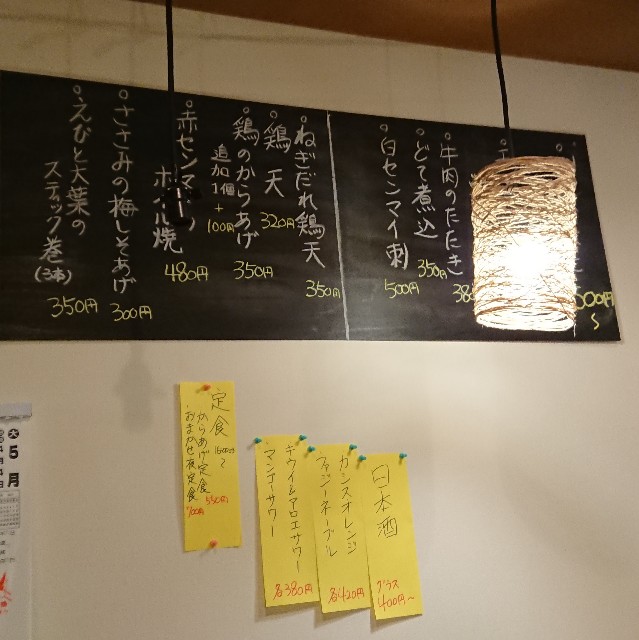 牛肉のたたき
どて煮込
350円
白センマイ刺
500円
ねぎだれ鶏天
350円
鶏天
320円
鶏のからあげ
350円
追加1個+
100円
赤センマイ
ホイル焼
480円
ささみの梅しそあげ
300円
えびと大葉の
スティック巻
(3本)
350円
定食
からあげ定食
550円
おまかせ夜定食
700円
日本酒
グラス
400円~
カシスオレンジ
ファジーネーブル
各420円
キウイ&アロエサワー
マンゴーサワー
各380円
5月